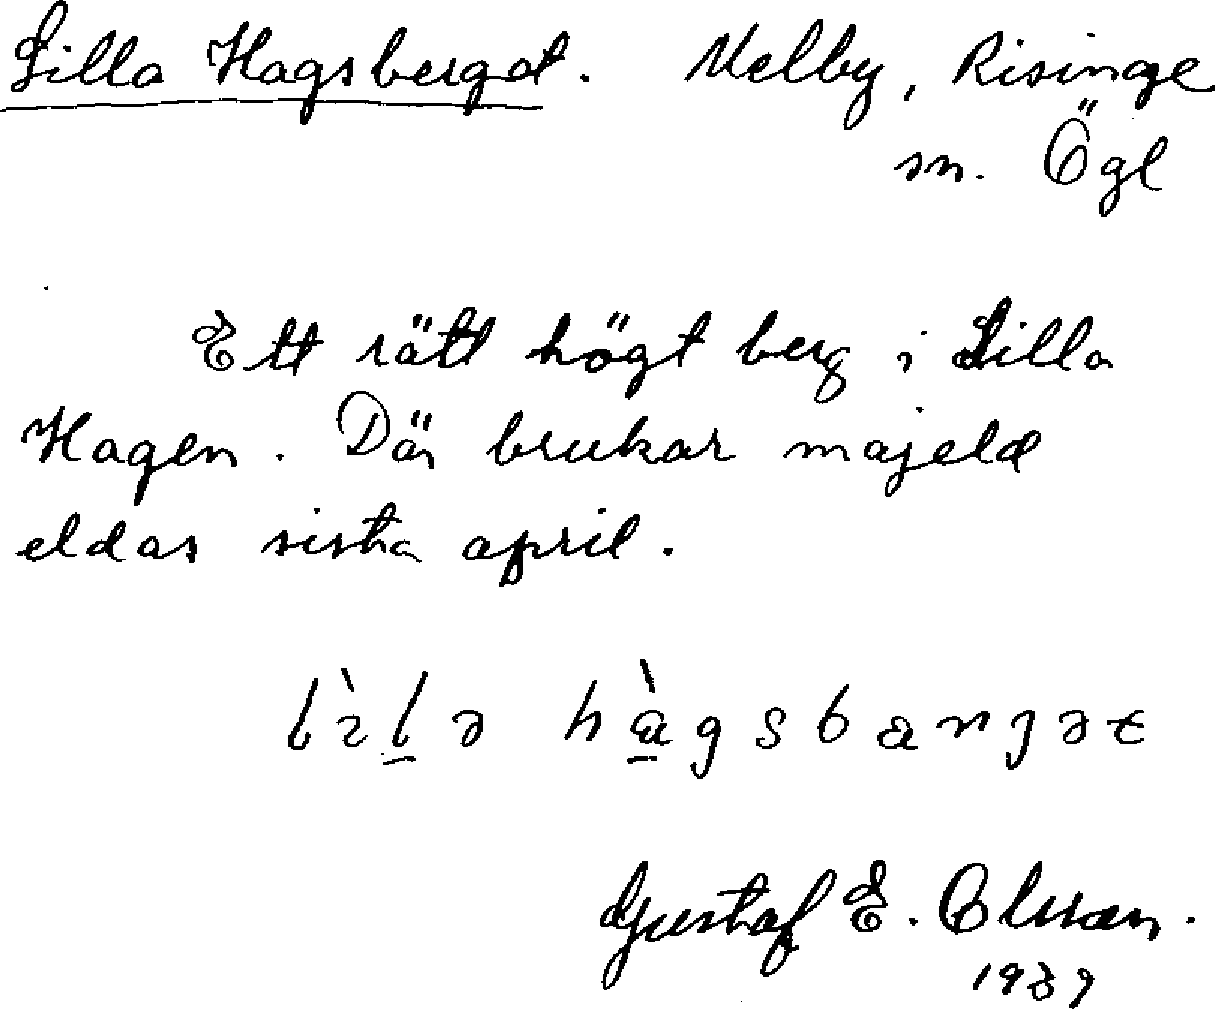 Lilla Hagsberget. Melby, Risinge
sn. Ögl
Ett rätt högt berg i Lilla
Hagen. Där brukar majeld
eldas sista april.
Gustaf E. Olsson.
1939